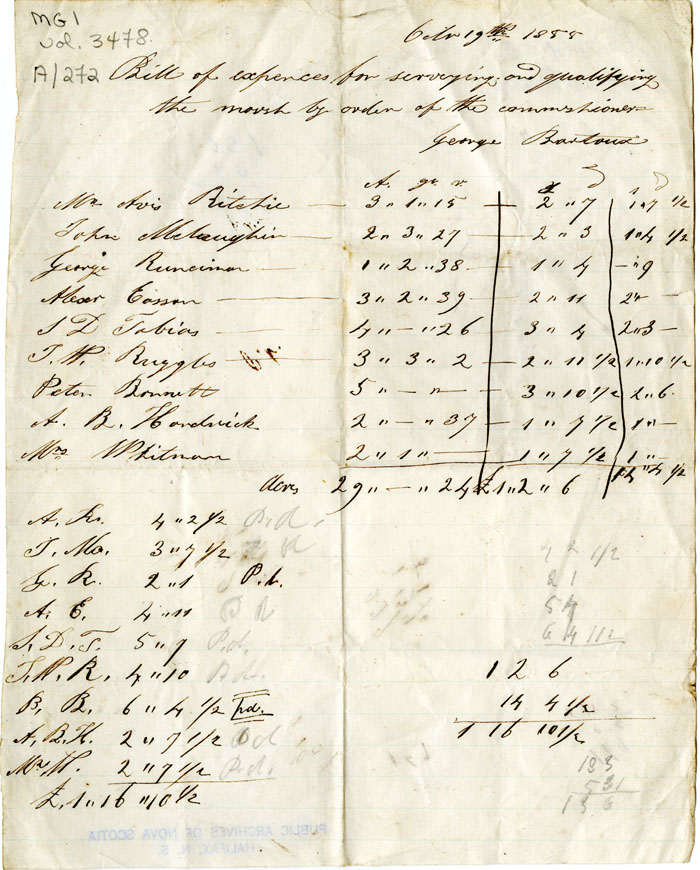 MG 1
vol. 3478
A/272
19th 1855
Bill of expences for surveying and qualifying
the marsh by order of the commistioner
George Bartoux
A. qr. r. £ s D s D
Mr Avis Ritchie — 3 " 1 " 15 — 2 " 7 1 " 7 1/2
John McLaughlin — 2 " 3 " 27 — 2 " 3 1 " 4 1/2
George Runciman — 1 " 2 " 38 — 1 " 4 — " 9
Alexr Easson — 3 " 2 " 39 — 2 " 11 2 " —
S D Tobias — 4 " — " 26 — 3 " 4 2 " 3 —
T. W. Ruggles 3 " 3 " 2 — 2 " 11 1/2 1 " 10 1/2
Peter Bonnett 5 " — " — 3 " 10 1/2 2 " 6
A. B. Hardwick 2 " — " 37 — 1 " 7 1/2 1 " —
Mrs Whitman 2 " 1 " — 1 " 7 1/2 1 " —
Acres 29 " — " 24 £ 1 " 2 " 6 14 " 4 1/2
A. R. 4 " 2 1/2 P.d.
J. Mc. 3 " 7 1/2 P d
G. R. 2 " 1 P.d.
A. E. 4 " 11 P d
S. D. T. 5 " 7 P.d.
T. W. R. 4 " 10 P.d.
P. B. 6 " 4 1/2 pd.
A. B. H. 2 " 7 1/2 P d
Mrs W. 2 " 7 1/2 P.d.
£ 1 " 16 " 10 1/2
4 2 1/2
2 1
5 7
6 4 1/2
1 2 6
14 4 1/2
1 16 10 1/2
PUBLIC ARCHIVES OF NOVA SCOTIA
HALIFAX, N. S.